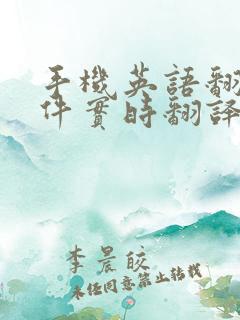 手機英語翻
件實時翻譯
李晨皎
未经同意禁止转载